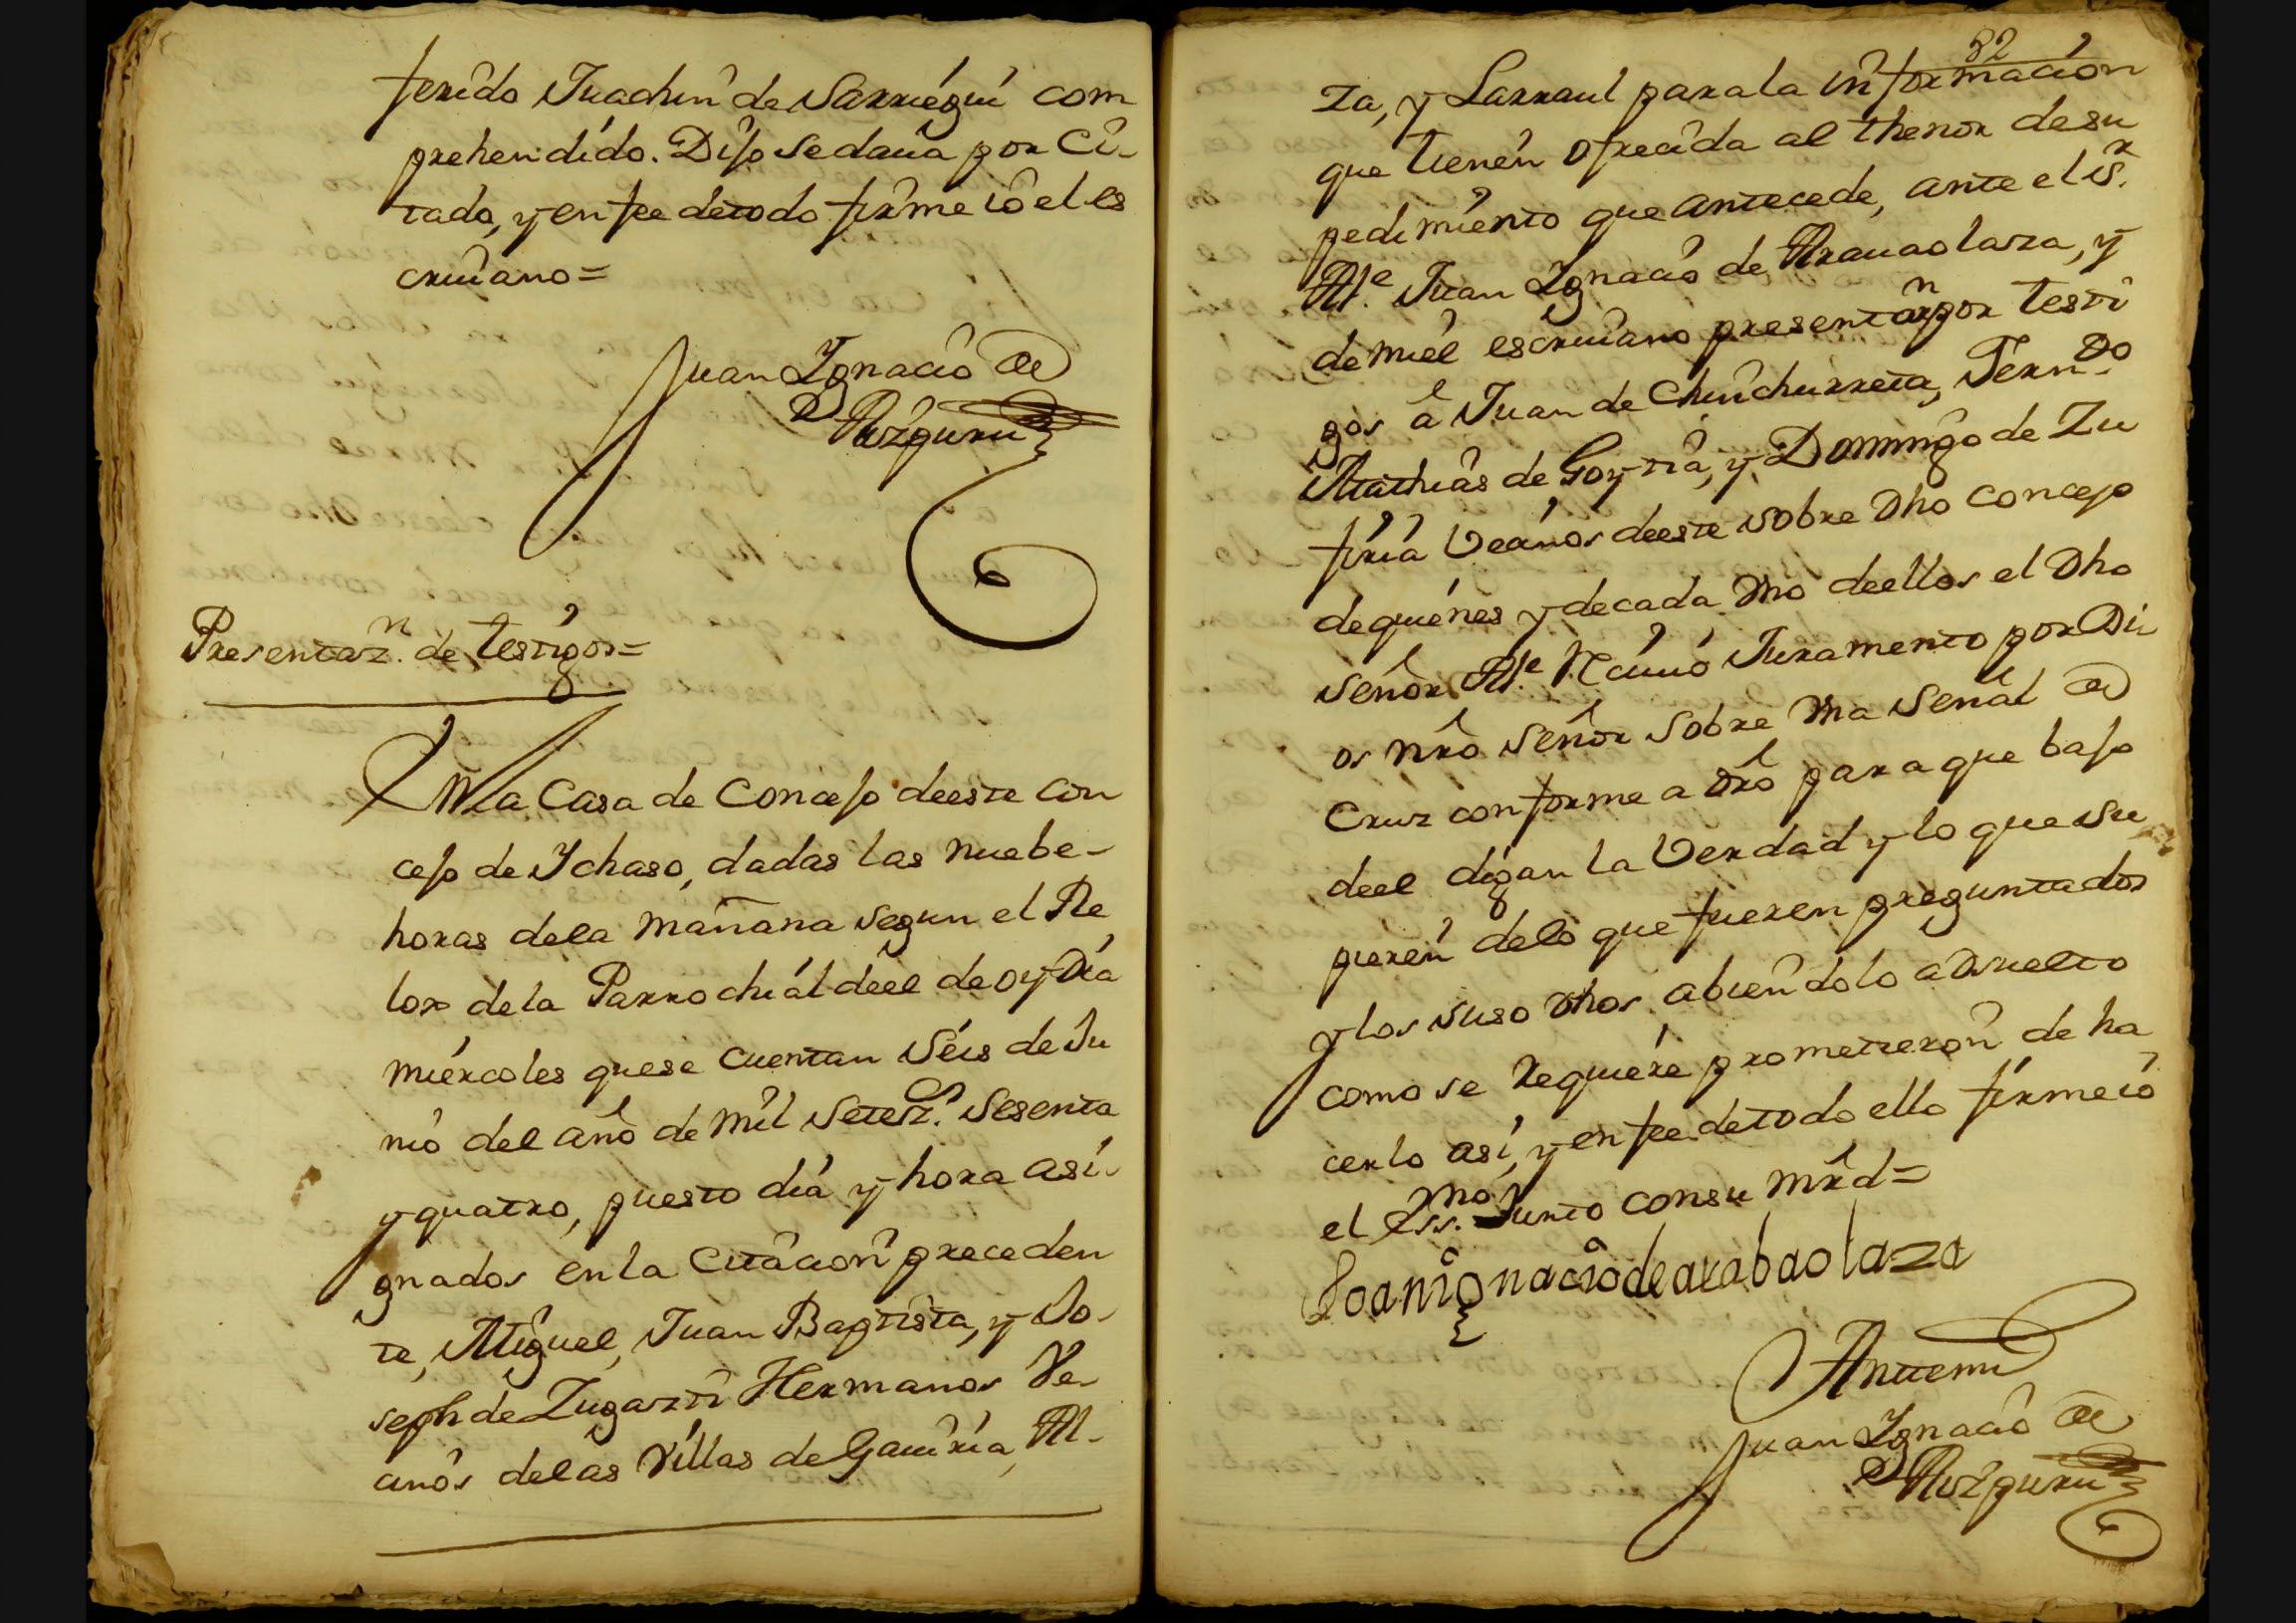 ferido Juachin de Sarriegui com
prehendido. Dijo se daua por Ci-
tado, y en fee de todo firme io el es
criuano=
Juan Ignacio de
Aizpuru
Presentaz.n de testigos=
En la Casa de Concejo de este Con
cejo de Ichaso, dadas las nuebe-
horas de la mañana segun el Re
lox de la Parrochiál de él de oy Dia
miércoles que se cuentan Séis de Ju
nio del año de mil Setez.s Sesenta
y quatro, puesto dia y hora asi-
gnados en la Citación preceden
te, Miguel, Juan Baptista, y Jo-
seph de Zugazti Hermanos Ve-
cinos de las Villas de Gauiria, Al-
82
za, y Larraul para la información
que tienen ofrecida al thenor de su
pedimiento que antecede, ante el S.r
Al.e Juan Ignacio de Arauaolaza, y
de mi el escriuano presentaron por testi
gos â Juan de Chinchurreta, Fern.do
Mathias de Goytia, y Domingo de Zu
firia Vecinos de este sobre dho Concejo
de quiénes y de cada uno de ellos el Dho
señor Al.e Reciuió Juramento por Di-
os nrô señor sobre una señal de
Cruz conforme a drô para que bajo
de el digan la Verdad y lo que su
pieren de lo que fueren preguntados
y los suso dhos abiendolo absuelto
como se requiére prometieron de ha
cerlo asi, y en fee de todo ello firme io
el Ess.no Junto con su mrd=
Joan ignacio de arabaolaza
Antemi
Juan Ignacio de
Aizpuru